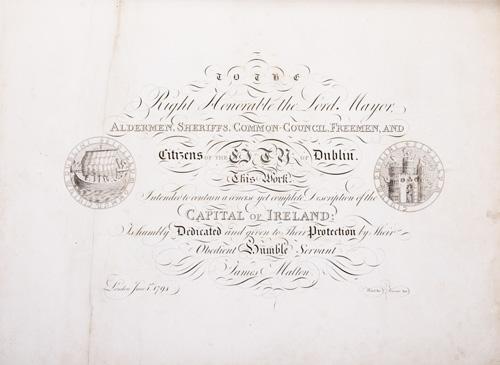 TO THE
Right Honorable the Lord Mayor,
ALDERMEN, SHERIFFS, COMMON-COUNCIL, FREEMEN, AND
Citizens OF THE CITY OF Dublin.
This Work:
Intended to contain a concise yet complete Description of the
CAPITAL OF IRELAND:
Is humbly Dedicated and given to Their Protection by their
Obedient Humble Servant
James Malton
London June 1st 1794